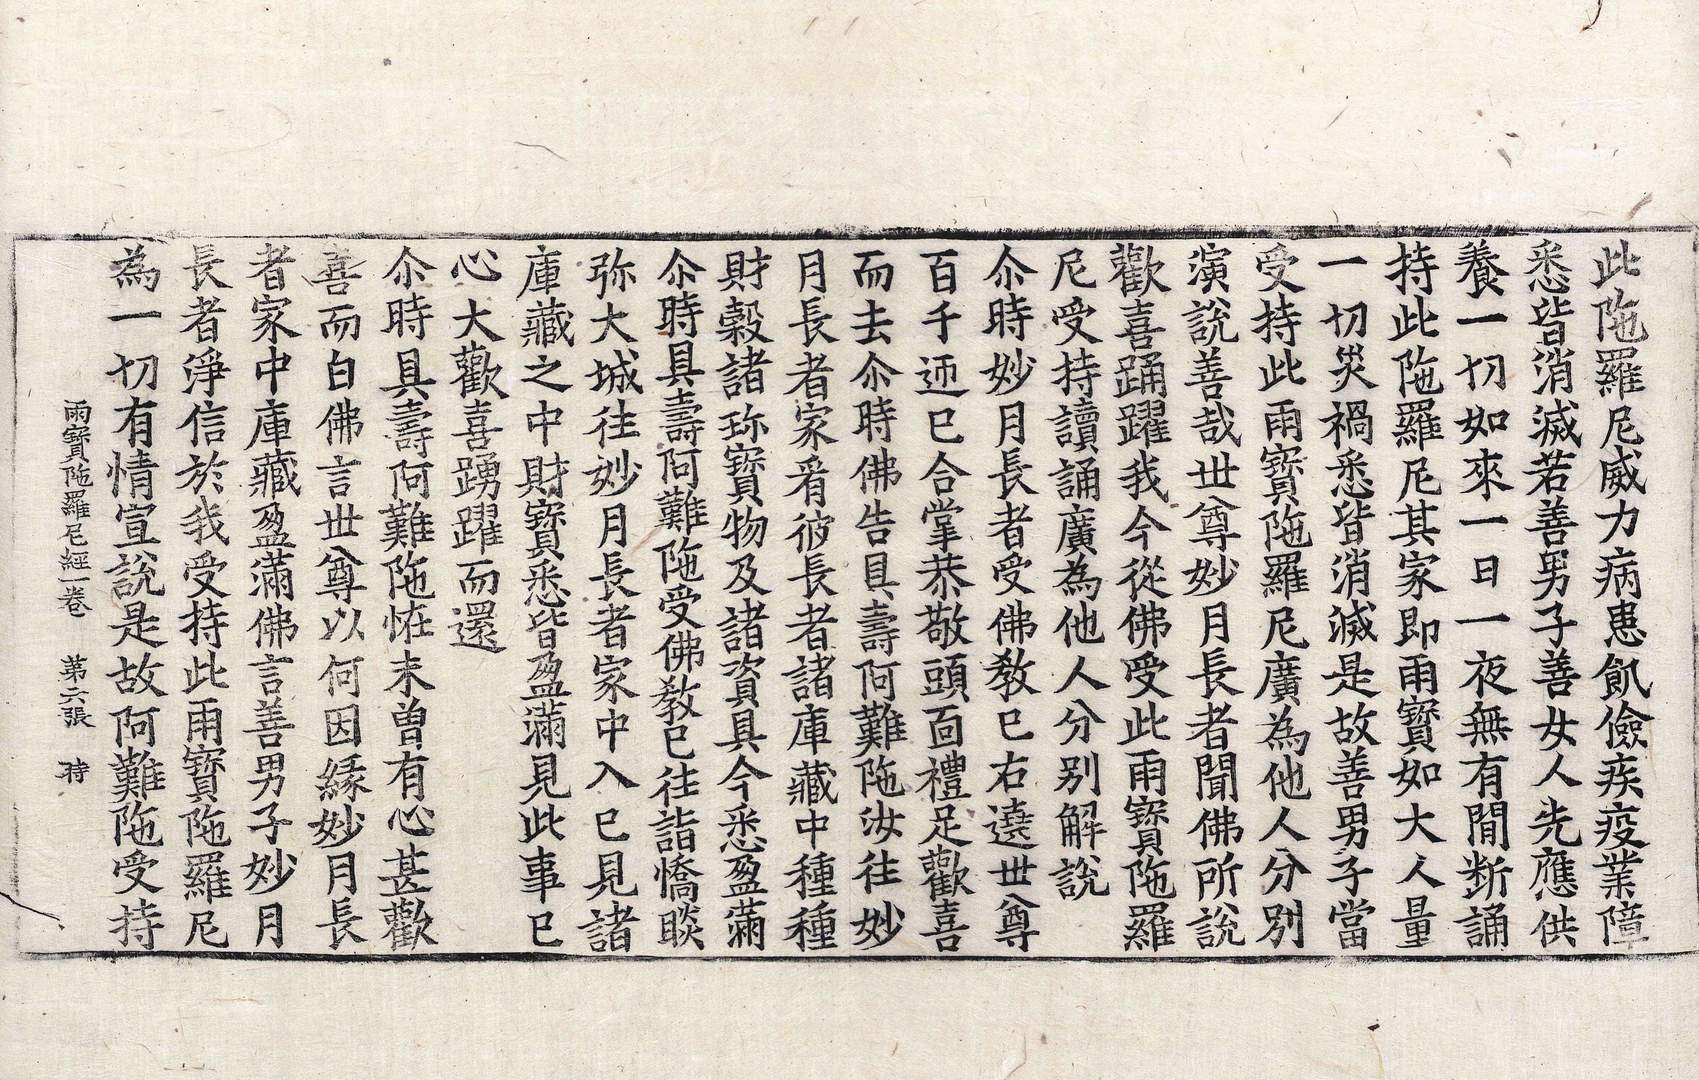 此陁羅尼威力病患飢儉疾疫業障
悉皆消滅若善男子善女人先應供
養一切如來一日一夜無有閒断誦
持此陁羅尼其家即雨寳如大人量
一切災禍悉皆消滅是故善男子當
受持此雨寳陁羅尼廣為他人分別
演說善哉世尊妙月長者聞佛所說
歡喜踊躍我今從佛受此雨寳陁羅
尼受持讀誦廣為他人分別解說
尒時妙月長者受佛教已右遶世尊
百千迊已合掌恭敬頭面禮足歡喜
而去尒時佛告具壽阿難陁汝往妙
月長者家㸔彼長者諸庫藏中種種
財榖諸珎寳物及諸資具今悉盈滿
尒時具壽阿難陁受佛教已往詣憍睒
弥大城往妙月長者家中入已見諸
庫藏之中財寳悉皆盈滿見此事已
心大歡喜踴躍而還
尒時具壽阿難陁恠未曽有心甚歡
喜而白佛言世尊以何因緣妙月長
者家中庫藏盈滿佛言善男子妙月
長者淨信於我受持此雨寳陁羅尼
為一切有情宣說是故阿難陁受持
雨寳陁羅尼經一卷 第六張 時